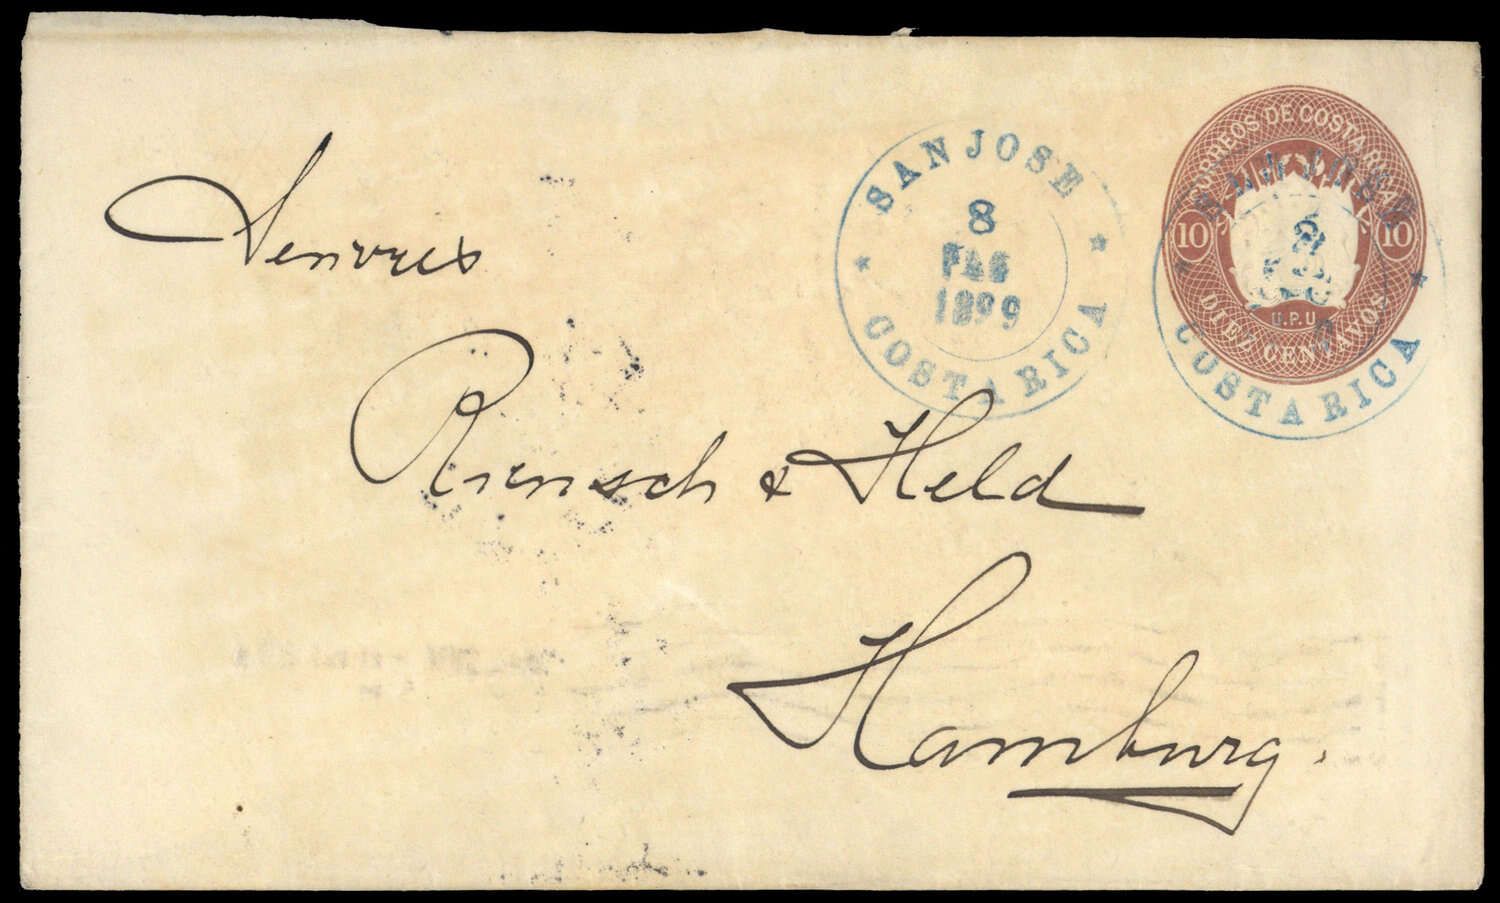 Senores
Riensch & Held
Hamburg.
SAN JOSE
8
1899
COSTA RICA
CORREOS DE COSTA RICA
10 10
U.P.U
DIEZ CENTAVOS
SAN JOSE
COSTA RICA